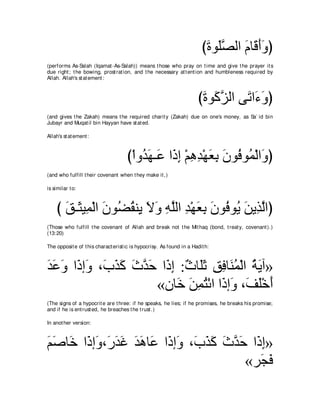 (وَأَقَامَ الصَّلَوةَ)
(performs As-Salah (Iqamat-As-Salah)) means those who pray on time and give the prayer its due right; the bowing, prostration, and the necessary attention and humbleness required by Allah. Allah's statement:
(وَءَاتَى الزَّكَوةَ)
(and gives the Zakah) means the required charity (Zakah) due on one's money, as Sa`id bin Jubayr and Muqatil bin Hayyan have stated.
Allah's statement:
(وَالْمُوفُونَ بِعَهْدِهِمْ إِذَا عَـهَدُواْ)
(and who fulfill their covenant when they make it,)
is similar to:
(الَّذِينَ يُوفُونَ بِعَهْدِ اللَّهِ وَلاَ يَنقُضُونَ الْمِيثَـقَ )
(Those who fulfill the covenant of Allah and break not the Mithaq (bond, treaty, covenant).) (13:20)
The opposite of this characteristic is hypocrisy. As found in a Hadith:
«آيَةُ الْمُنَافِقِ ثَلَاثٌ: إِذَا حَدَّثَ كَذَبَ، وَإِذَا وَعَدَ
أَخْلَفَ، وَإِذَا ائْتُمِنَ خَانَ»
(The signs of a hypocrite are three: if he speaks, he lies; if he promises, he breaks his promise; and if he is entrusted, he breaches the trust.)
In another version:
«إِذَا حَدَّثَ كَذَبَ، وَإِذَا عَاهَدَ غَدَرَ،وَإِذَا خَاصَمَ
فَجَر»